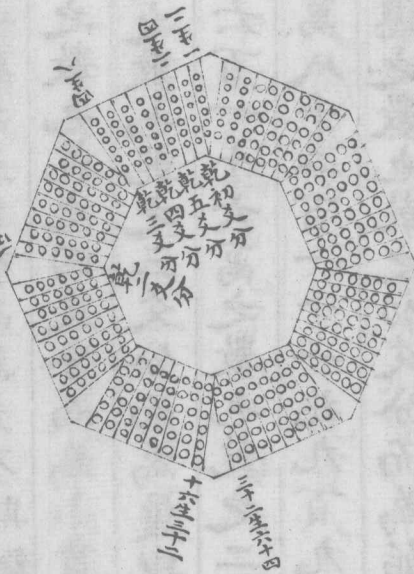 一生二
二生四
四生八
乾初爻分
乾五爻分
乾四爻分
乾三爻分
乾二爻分
十六生三十二
三十二生六十四